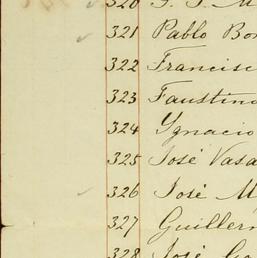 320
321 Pablo Bo
322 Francisc
323 Faustino
324 Ygnacio
325 José Vasa
326 José M
327 Guiller
328 José Go